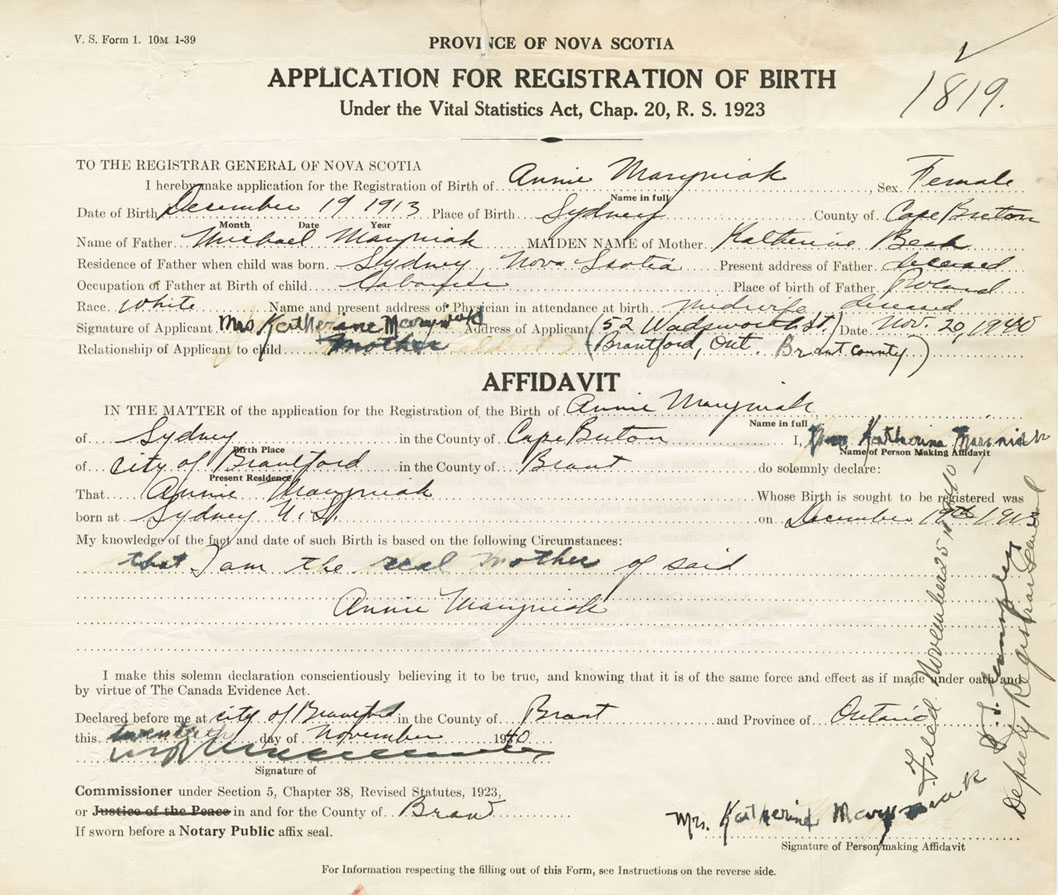 V. S. Form 1. 10M 1-39
PROVINCE OF NOVA SCOTIA
APPLICATION FOR REGISTRATION OF BIRTH
Under the Vital Statistics Act, Chap. 20, R. S. 1923
1819.
TO THE REGISTRAR GENERAL OF NOVA SCOTIA
I hereby make application for the Registration of Birth of Annie Maryniak, Sex Female
Name in full
Date of Birth December 19 1913 Place of Birth Sydney County of Cape Breton
Month Date Year
Name of Father Michael Maryniak MAIDEN NAME of Mother Katherine
Residence of Father when child was born Sydney, Nova Scotia Present address of Father deceased
Occupation of Father at Birth of child Place of birth of Father Poland
Race White Name and present address of Physician in attendance at birth midwife deceased
Signature of Applicant Mrs Katherane Address of Applicant (52 Wadsworth St.) Date Nov. 20, 1940
Relationship of Applicant to child mother (Brantford, Ont. Brant county)
AFFIDAVIT
IN THE MATTER of the application for the Registration of the Birth of Annie Maryniak
Name in full
of Sydney in the County of Cape Breton I, Katherine Maryniak
Birth Place
Name of Person Making Affidavit
of city of Brantford in the County of Brant do solemnly declare:
Present Residence
That Annie Maryniak Whose Birth is sought to be registered was
born at Sydney N.S. on December 19th 1913
My knowledge of the fact and date of such Birth is based on the following Circumstances:
that I am the real mother of said
Annie Maryniak
I make this solemn declaration conscientiously believing it to be true, and knowing that it is of the same force and effect as if made under oath and
by virtue of The Canada Evidence Act.
Declared before me at city of Brantford in the County of Brant and Province of Ontario
this twentieth day of November 1940
Signature of
Commissioner under Section 5, Chapter 38, Revised Statutes, 1923,
or Justice of the Peace in and for the County of Brant
If sworn before a Notary Public affix seal.
Mrs. Katherine Maryniak
Signature of Person making Affidavit
Filed November 25 1940
Deputy Registrar General
For Information respecting the filling out of this Form, see Instructions on the reverse side.